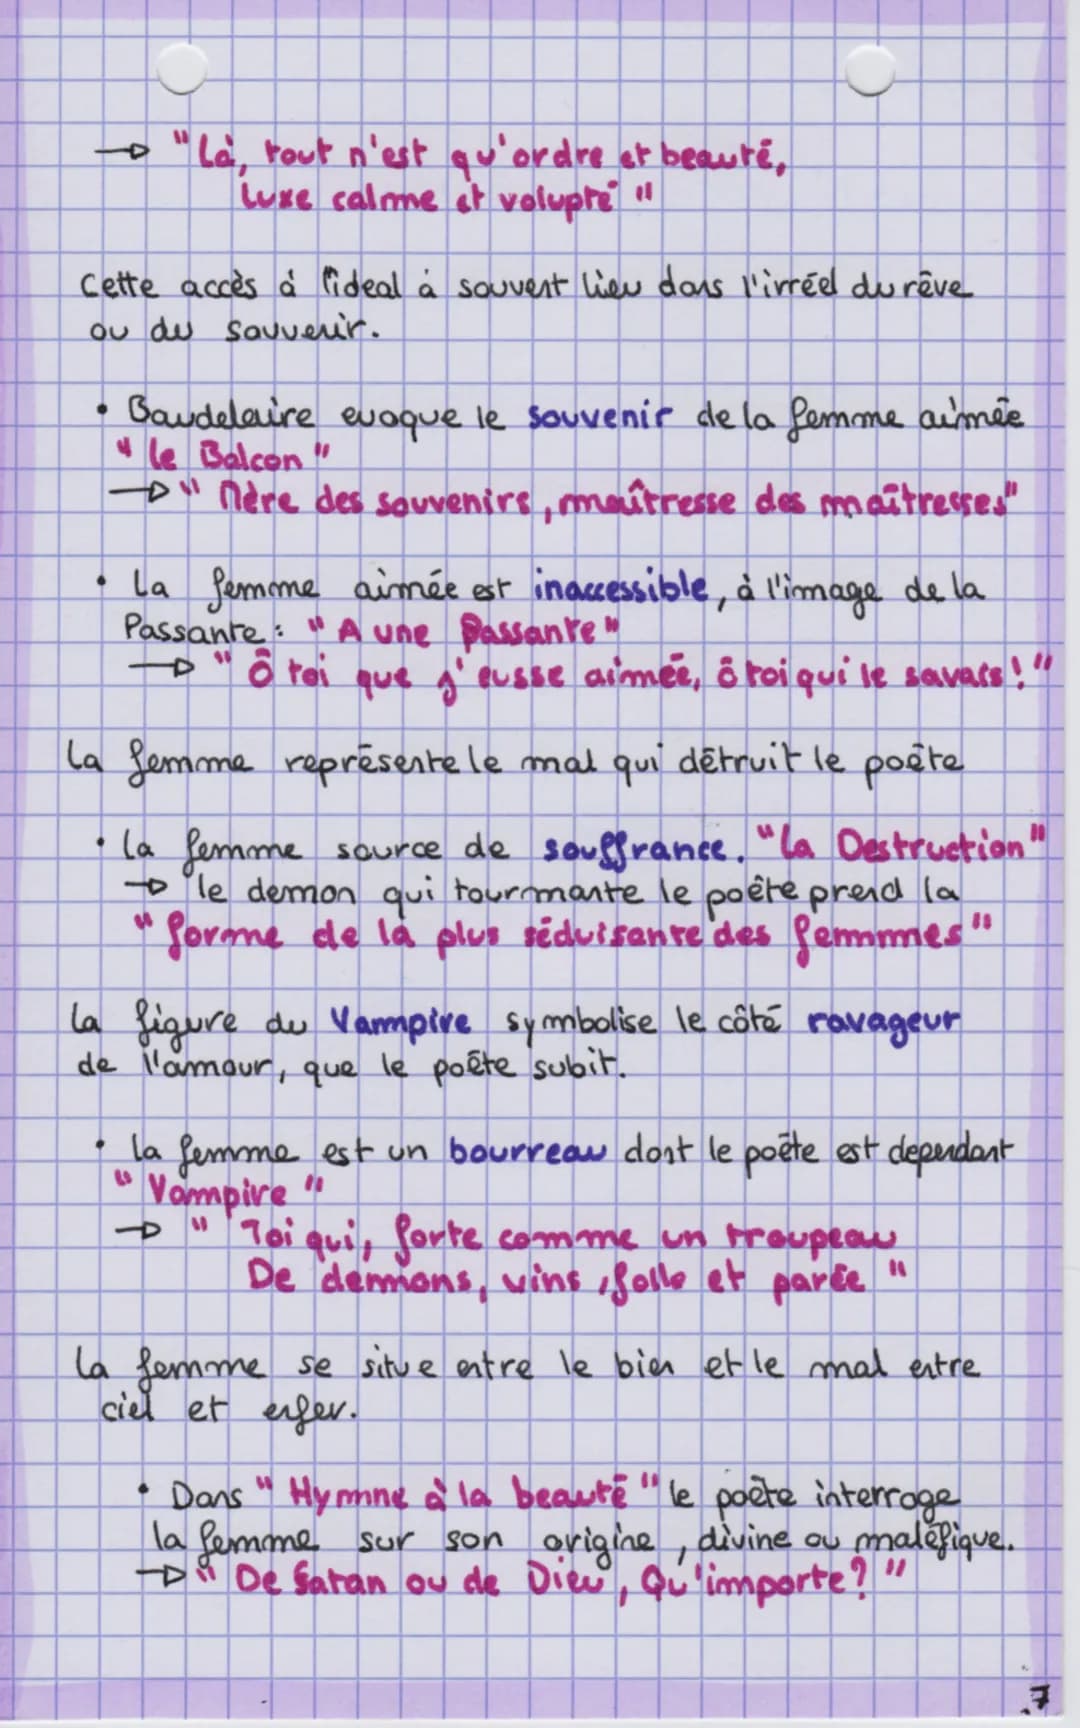 → "Là, tout n'est qu'ordre et beauté,
luxe calme et volupté"
Cette accès à l'ideal à souvent lieu dans l'irréel du rêve
ou du souvenir.
• Baudelaire evoque le souvenir de la femme aimée
"le Balcon"
→ "Mère des souvenirs, maîtresse des maîtresses"
• La femme aimée est inaccessible, à l'image de la
Passante : "A une Passante"
→ "Ô toi que j'eusse aimée, ô toi qui le savais !"
La femme représente le mal qui détruit le poète
• la femme source de souffrance. "la Destruction"
→ le demon qui tourmante le poète prend la
"forme de la plus séduisante des femmmes"
La figure du Vampire symbolise le côté ravageur
de l'amour, que le poète subit.
• la femme est un bourreau dont le poète est dependant
"Vampire"
→ "Toi qui, forte comme un troupeau
De demons, vins, folle et parée"
La femme se situe entre le bien et le mal entre
ciel et enfer.
• Dans "Hymne à la beauté" le poète interroge
la femme sur son origine, divine ou maléfique.
→ "De Satan ou de Dieu, Qu'importe ?"
7